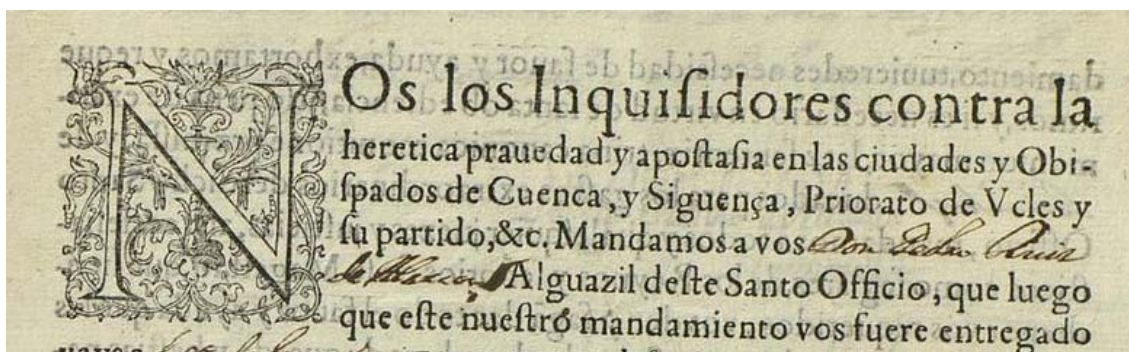 NOs los Inquiſidores contra la
heretica prauedad y apoſtaſia en las ciudades y Obi-
ſpados de Cuenca, y Siguença, Priorato de Vcles y
ſu partido, &c. Mandamos a vos Don Pedro Ruiz
de Alguazil deſte Santo Officio, que luego
que eſte nueſtro mandamiento vos fuere entregado